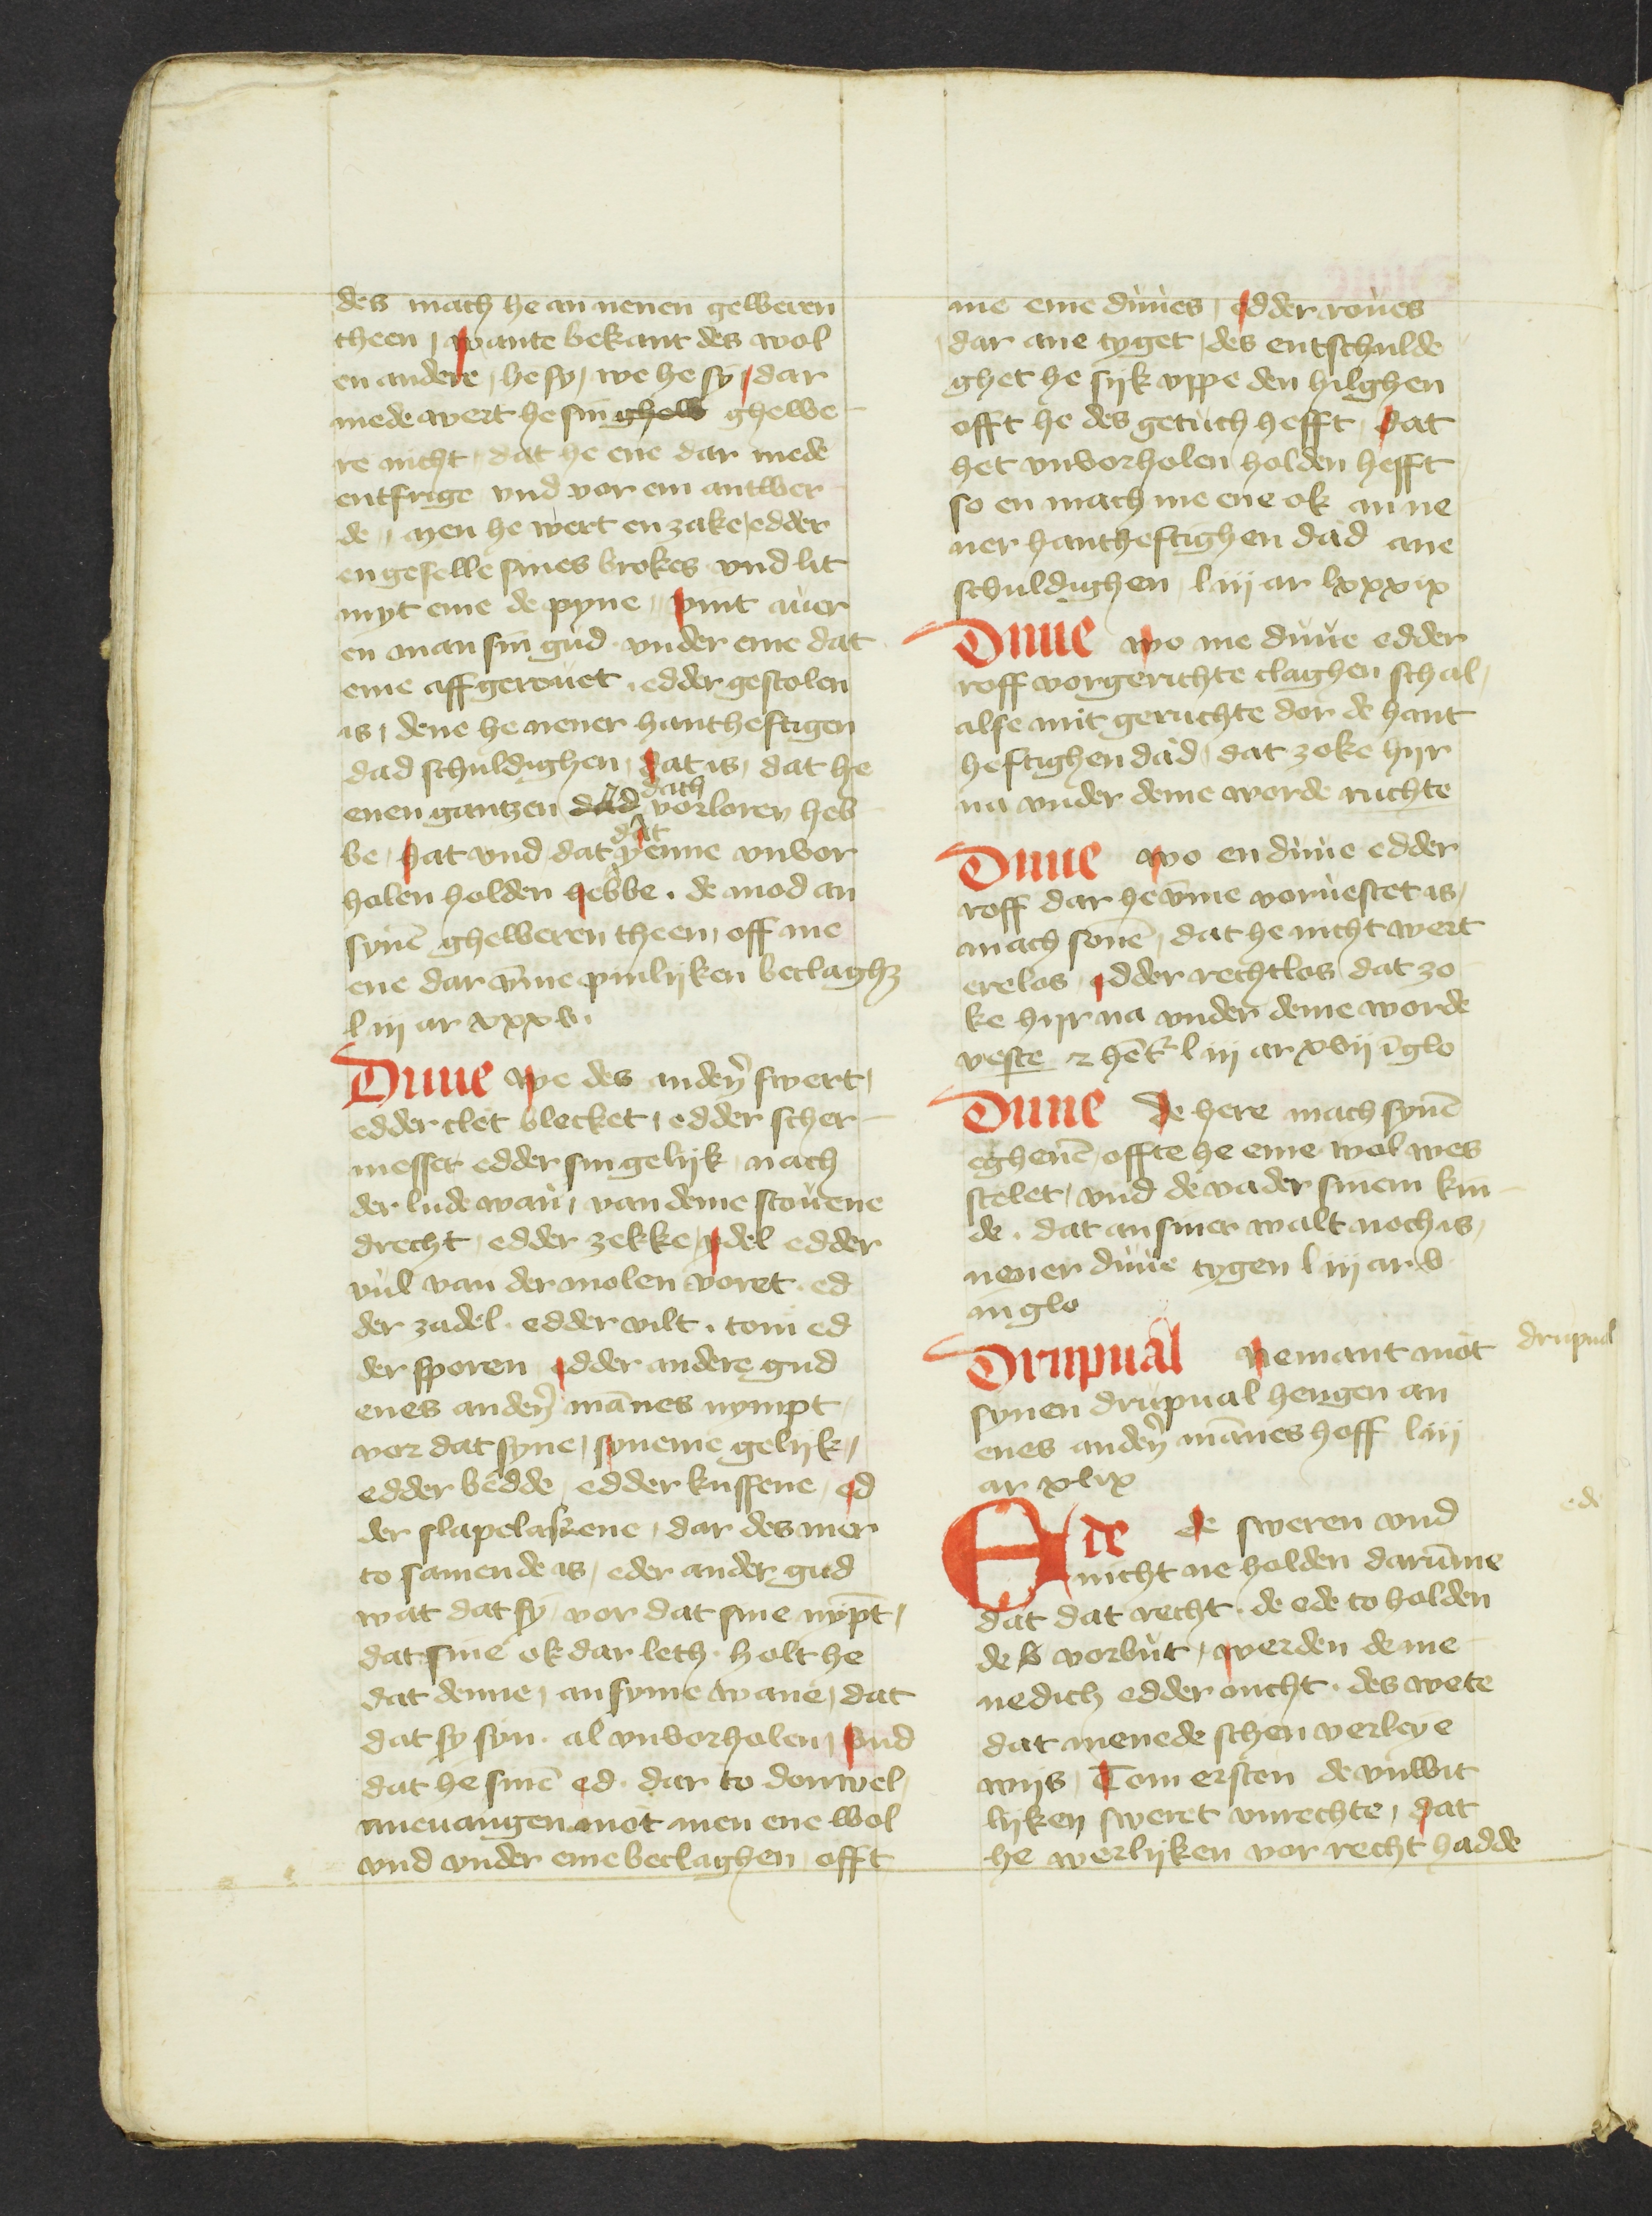 des mach he an nenen geweren
theen / wante bekant des wol
en andere / he sy / we he sy / dar
mede wert he sin ghew ghewe
re nicht / dat he ene dar mede
entfrige vnd vor em antwer
de / men he wert en zake / edder
en geselle sines brokes vnd lit
myt eme de pyne / vint auer
en man sin gud vnder eme dat
eme aff gerouet / edder gestolen
is / dene he nener hantheftigen
dad schuldighen / dat is / dat he
enen gantzen dad dach vorloren heb
be / dat vnd dat dat yenne vnvor
holen holden hebbe . de mod an
synē gheweren theen / off me
ene dar vm̄e pinlijken beclaghꝫ
l iij ar xxxv .
Duue we des andeṙ swert /
edder clet blecket / edder scher
messet edder sin gelijk nach
der lude wan / van deme stouene
drecht / edder zekke / ydel edder
vul van der molen voret . ed
der zadel . edder vilt . tom ed
der sporen edder andere gud
enes andeṙ mānes nympt
vor dat syne / syneme gelijk /
edder bedde / edder kussene / ed
der slapelakene / dar des mer
to samende is / eder ander gud
wat dat sy / vor dat sine nypt /
dat sine ok dar leth . holt he
dat denne / an syme wane / dat
dat sy syn . al vnvorholen / vnd
dat he sinē ed . dar to don wel
aneuangen mot men ene wol
vnd vnder eme beclaghen / offt
me eme duues / edder roues
dar ane tyget / des entschulde
ghet he sijk vppe den hilghen
offt he des getuch hefft / dat
het vnvorholen holden hefft
so en mach me ene ok an ne
ner hantheftighen dad ane
schuldighen / l iij ar lxxxix
Duue wo me duue edder
roff vor gerichte claghen schal /
alse mit geruchte dor de hant
heftighen dad / dat zoke hijr
na vnder deme worde ruchte
Duue wo en duue edder
roff dar he vm̄e voruestet is /
mach sonē / dat he nicht wert
erelos edder rechtlos dat zo
ke hijr na vnder deme worde
veste l iij ar xvij ī glo
Duue de here mach synē
eghenē / offte he eme wol wes
stelet / vnd de vader sinem kin
de . dat an siner walt noch is /
nener duue tygen l iij ar v
in glo
Drupual nemant mot drupual
synen drupual hengen an
enes andeṙ mānes hoff l iij
ar xlix
Ede de sweren vnd ede
nicht ne holden darūme
dat dat recht . de ede to holden
de vorbut / werden de me
nedich edder nicht . des wete
dat menede schen verleye
wijs / Tom ersten de vnwit
lijken sweret vnrechte / dat
he werlijken vor recht hadde